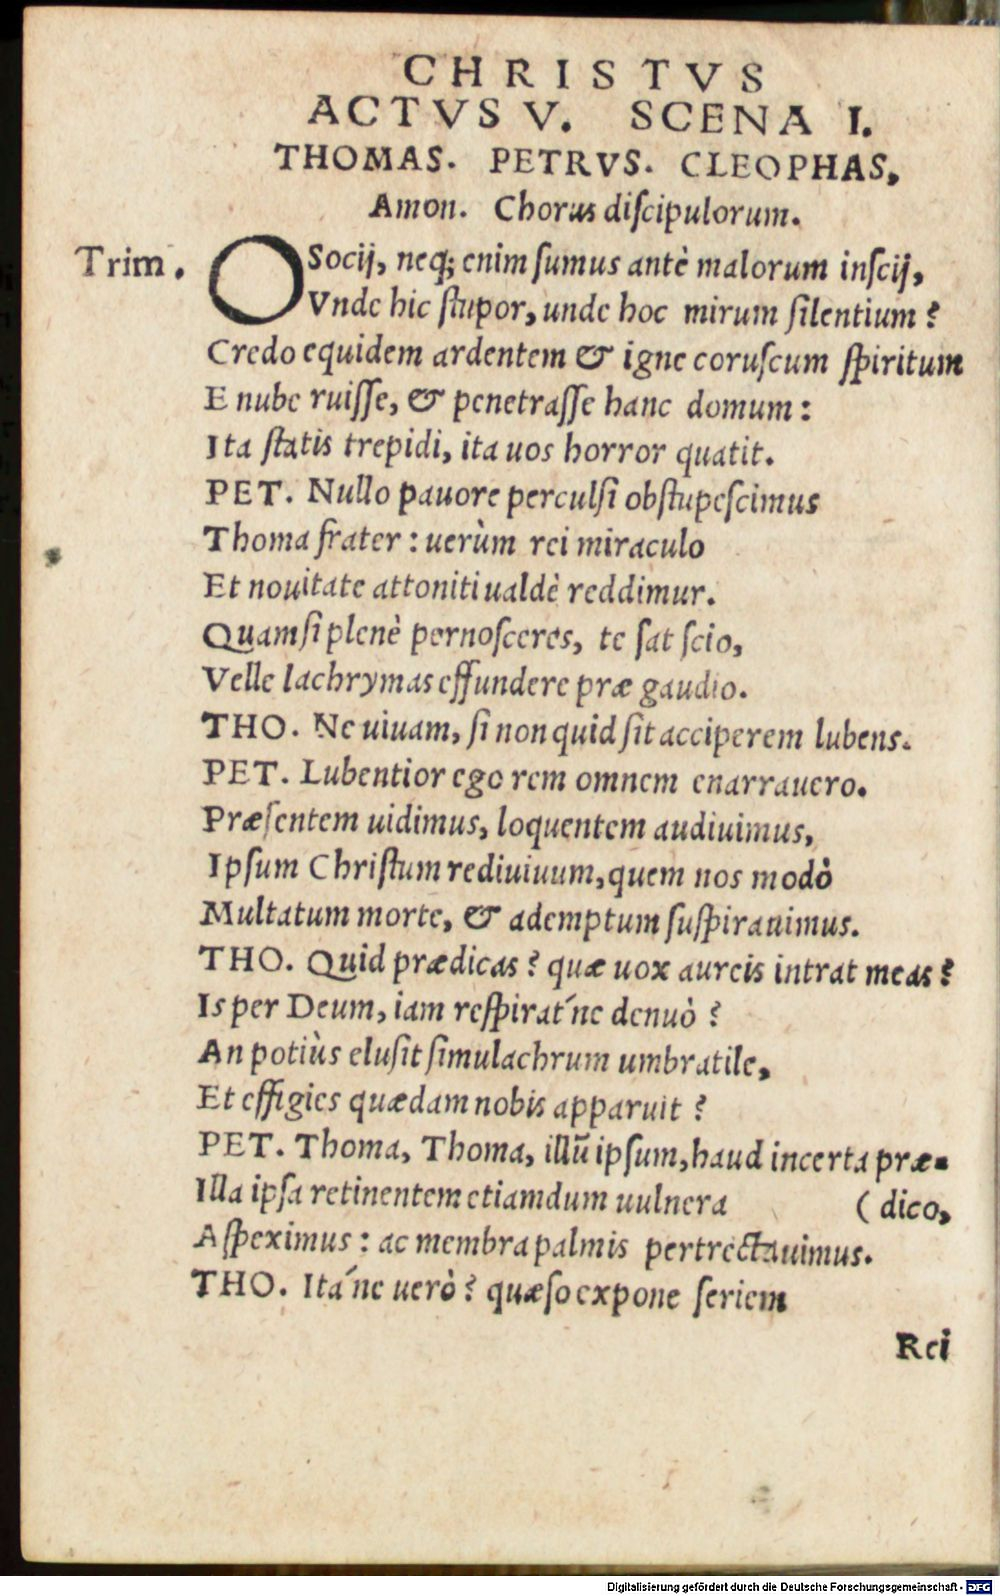 CHRISTVS
ACTVS V. SCENA I.
THOMAS. PETRVS. CLEOPHAS,
Amon. Chorus diſcipulorum.
Trim. O Socij, neq; enim ſumus antè malorum inſcij,
Vnde hic ſtupor, unde hoc mirum ſilentium?
Credo equidem ardentem & igne coruſcum ſpiritum
E nube ruiſſe, & penetraſſe hanc domum:
Ita ſtatis trepidi, ita uos horror quatit.
PET. Nullo pauore perculſi obſtupeſcimus
Thoma frater: uerùm rei miraculo
Et nouitate attoniti ualdè reddimur.
Quam ſi plenè pernoſceres, te ſat ſcio,
Velle lachrymas effundere præ gaudio.
THO. Ne uiuam, ſi non quid ſit acciperem lubens.
PET. Lubentior ego rem omnem enarrauero.
Præſentem uidimus, loquentem audiuimus,
Ipſum Chriſtum rediuiuum, quem nos modò
Multatum morte, & ademptum ſuſpirauimus.
THO. Quid prædicas? quæ uox aureis intrat meas?
Is per Deum, iam reſpirat´ne denuò?
An potiùs eluſit ſimulachrum umbratile,
Et effigies quædam nobis apparuit?
PET. Thoma, Thoma, illũ ipſum, haud incerta præ-
Illa ipſa retinentem etiamdum uulnera (dico,
Aſpeximus: ac membra palmis pertrectauimus.
THO. Ita´ne uerò? quæſo expone ſeriem
Rei
Digitalisierung gefördert durch die Deutsche Forschungsgemeinschaft - DFG